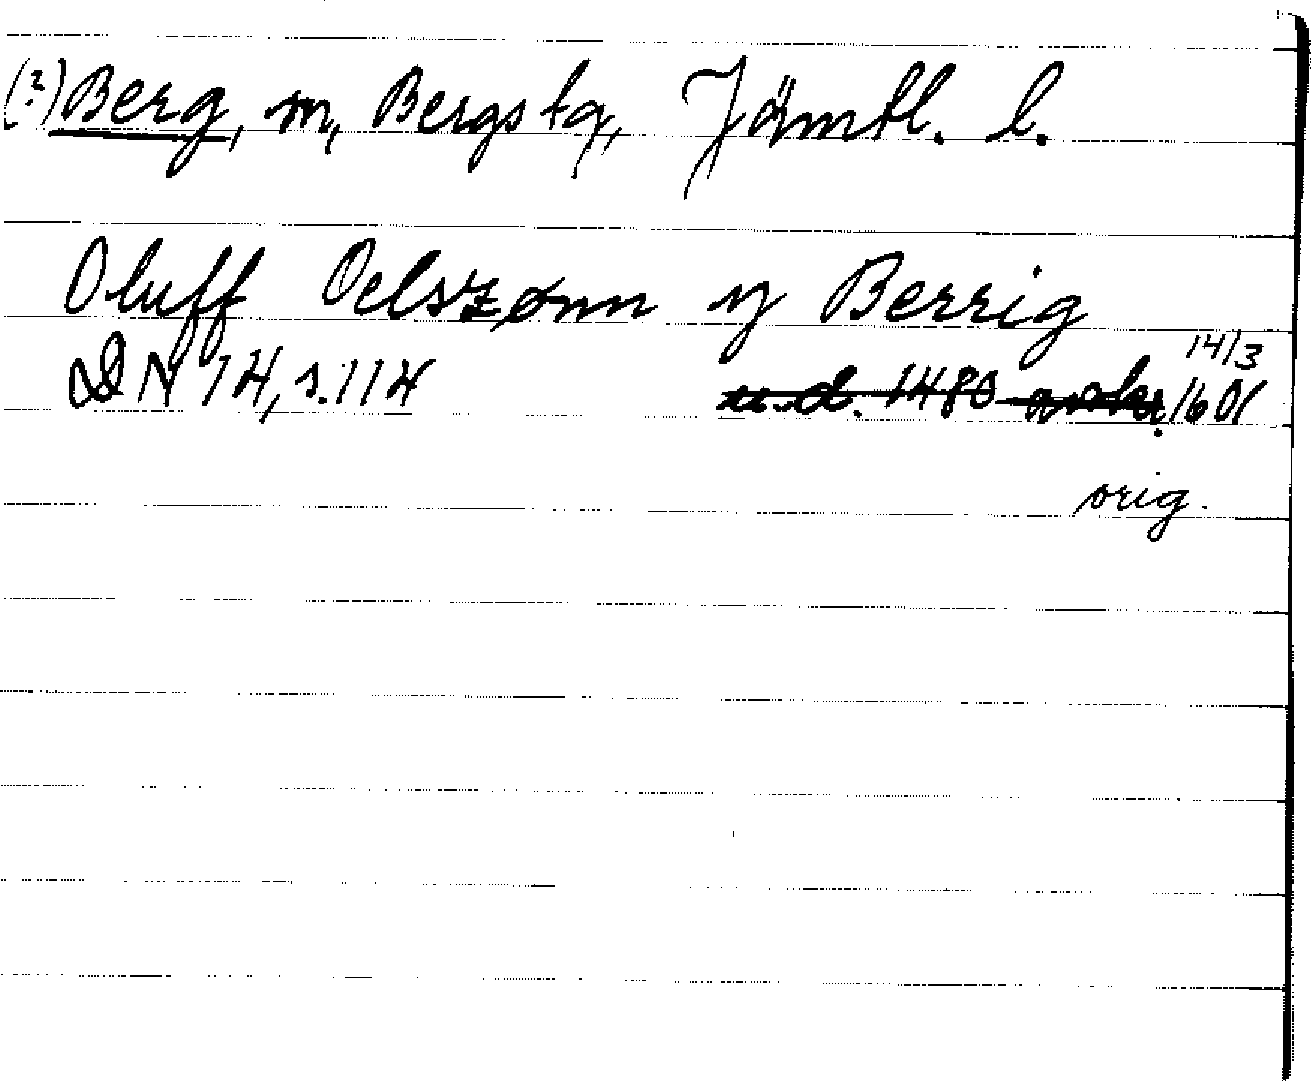 (?) Berg, sn, Bergs tg, Jämtl. l.
Oluff Oelszønn y Berrig
DN 14, s. 114 u.d. 1480 avskr. 14/3 1601
orig.